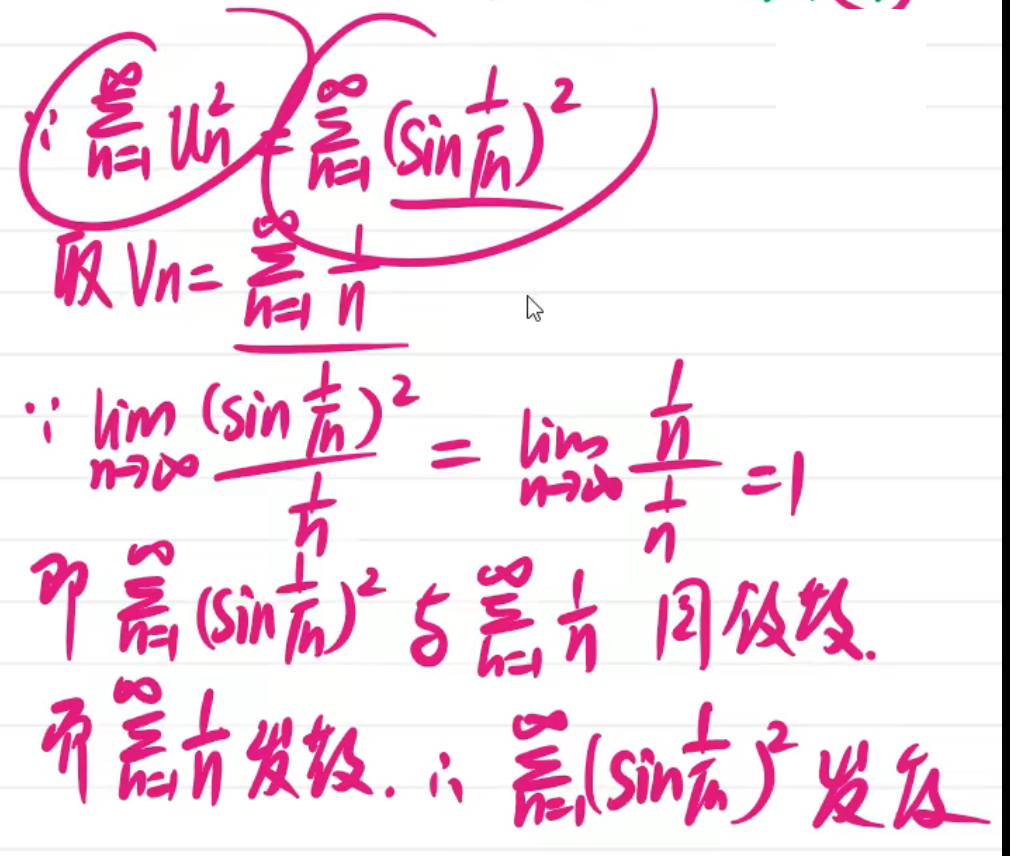 ∵ ∑_{n=1}^{∞} u_n^2 = ∑_{n=1}^{∞} (sin 1/√n)^2
取 Vn = ∑_{n=1}^{∞} 1/n
∵ lim_{n→∞} (sin 1/√n)^2 / (1/n) = lim_{n→∞} (1/n) / (1/n) = 1
即 ∑_{n=1}^{∞} (sin 1/√n)^2 与 ∑_{n=1}^{∞} 1/n 同敛散.
而 ∑_{n=1}^{∞} 1/n 发散. ∴ ∑_{n=1}^{∞} (sin 1/√n)^2 发散